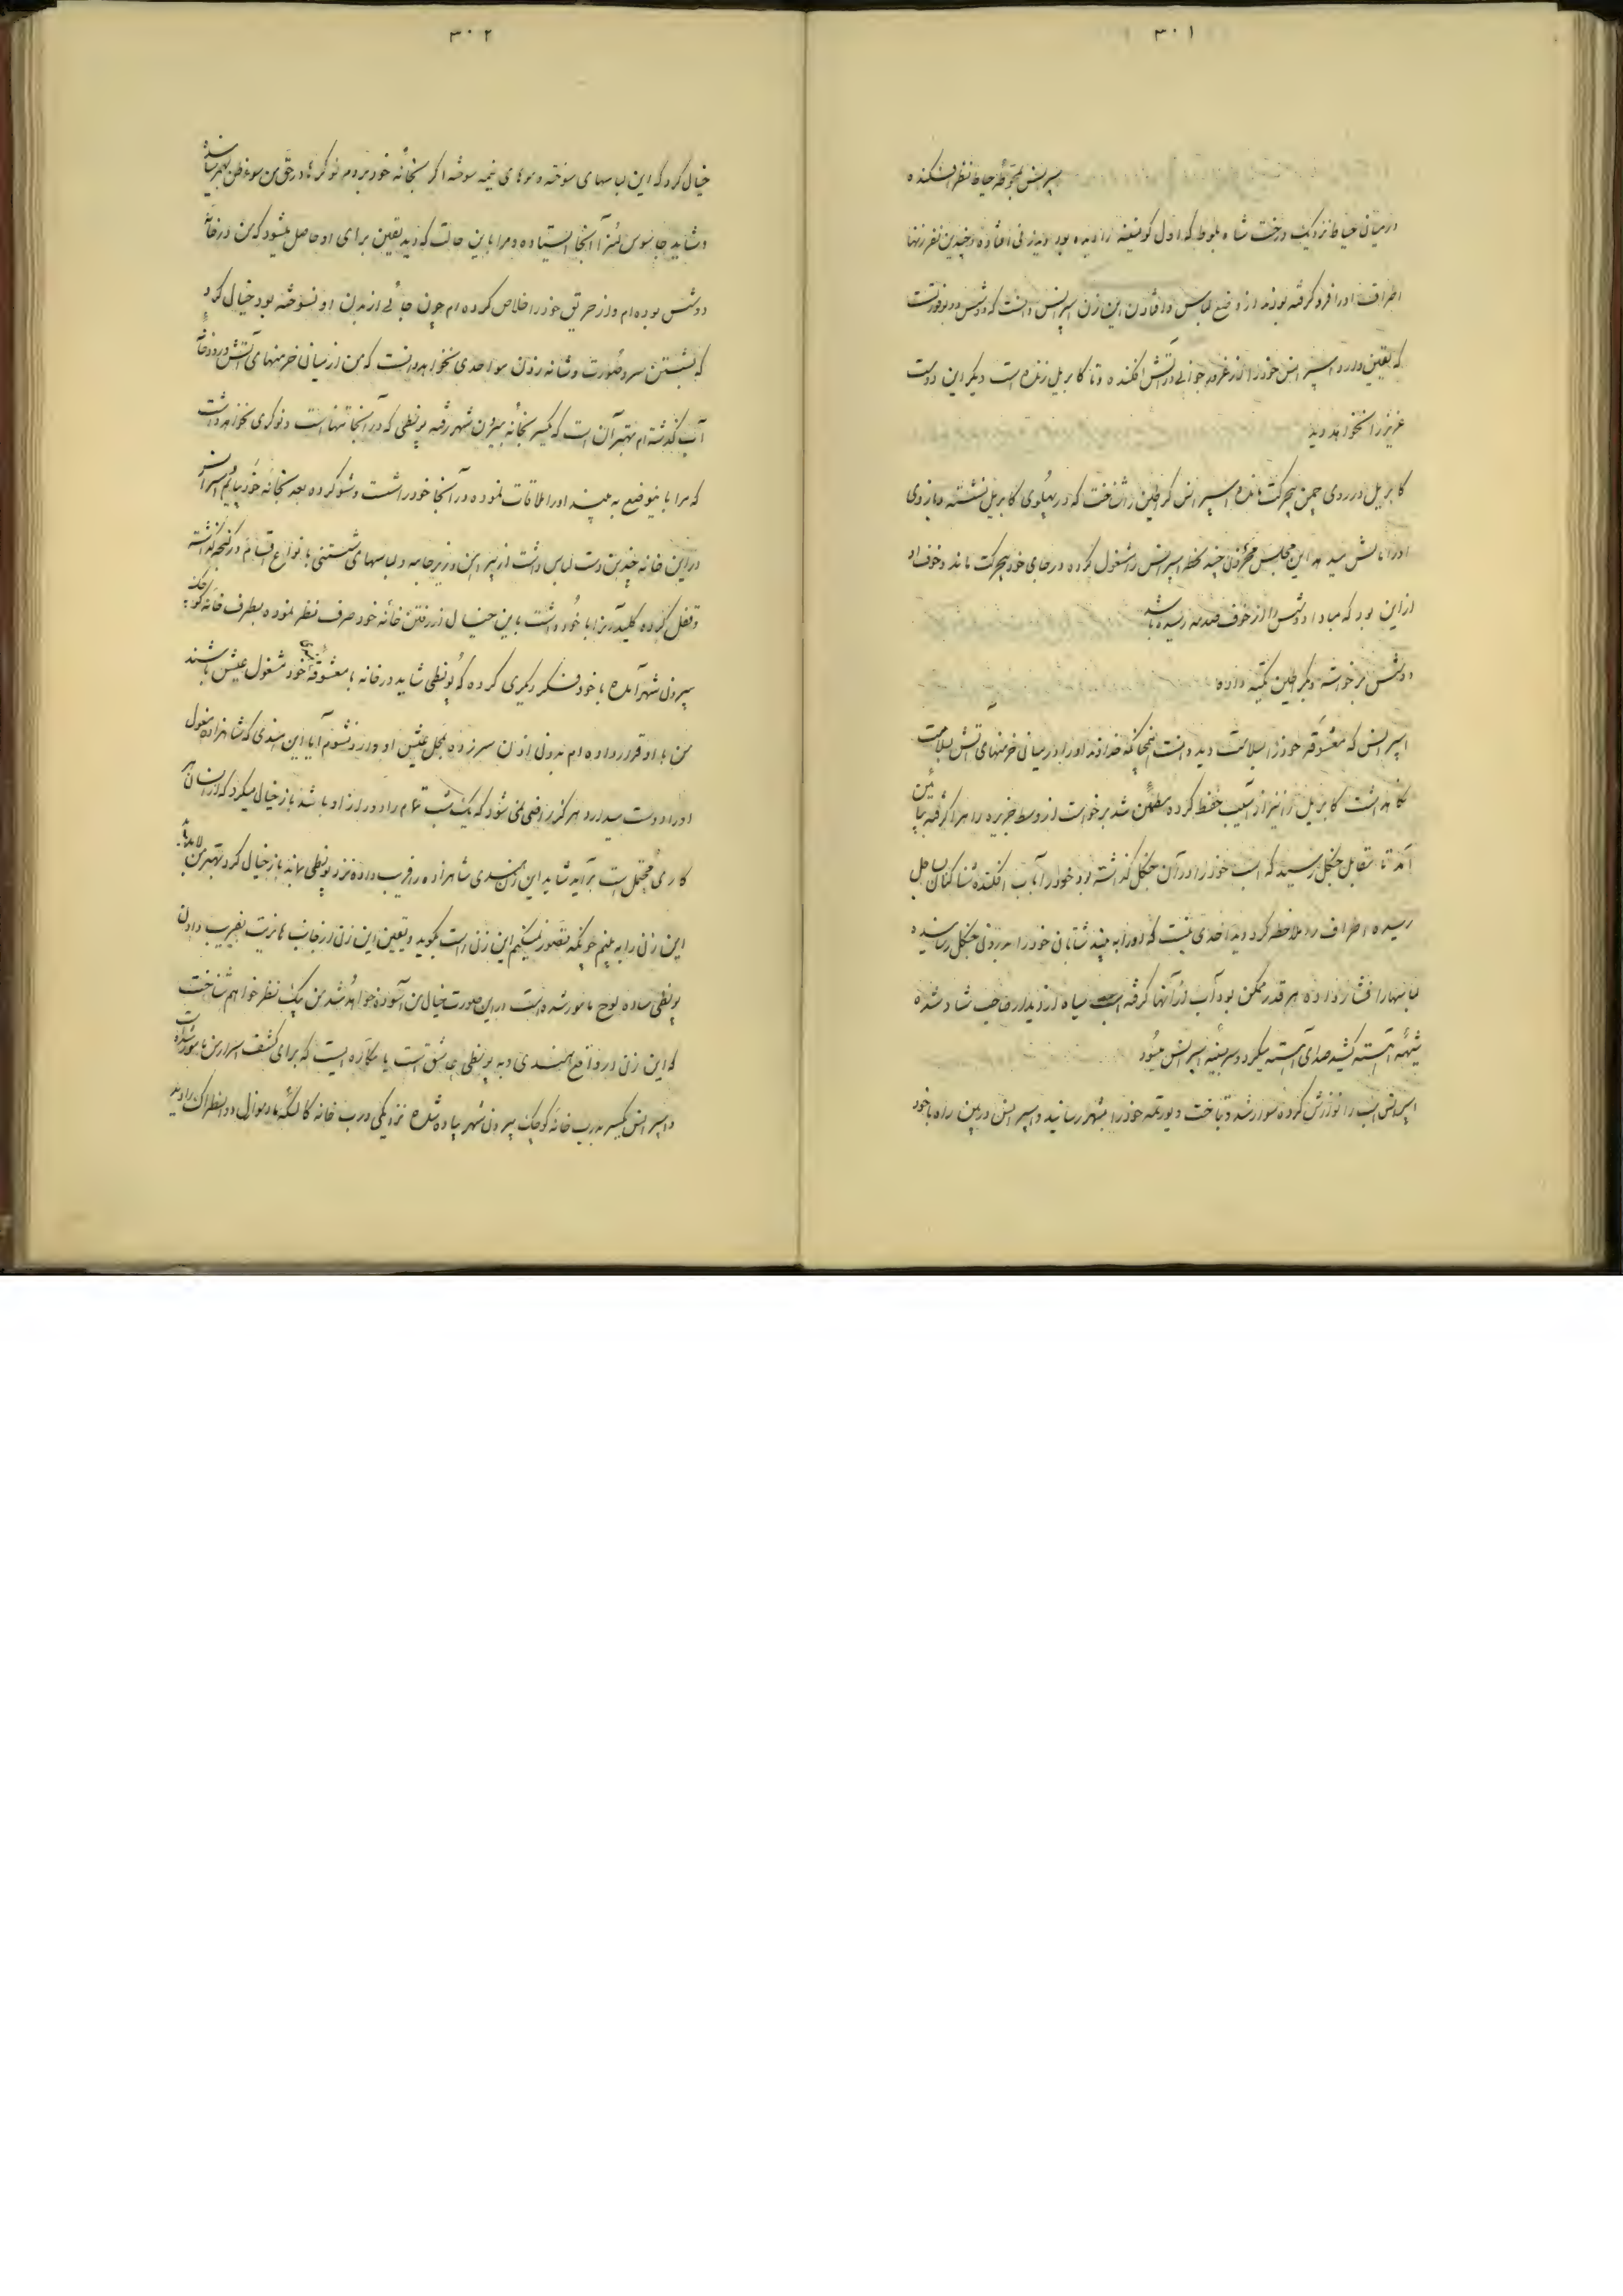 ۳۰۱
سپرانس بمحوطه حیاط نظر افکنده
در میان حیاط نزدیک درخت شاه بلوط که اول کوسفند را دیده بود دید زنی افتاده و چندین نفر زنها
اطراف او را فرو گرفته بودند از وضع لباس و افتادن این زن اسپرانس دانست که دوشس دوبوفورت است
که یقین دارد اسپرانس خود را از غرور جوانی در آتش افکنده و تا کابریل زنده است دیگر این دوست
عزیز را نخواهد دید
کابریل در روی چمن بیحرکت مانده اسپرانس کراطین را شناخت که در پهلوی کابریل نشسته و بازوی
او را مالش میدهد این مجلس محزون چند لحظه اسپرانس را مشغول کرده در جای خود بیحرکت ماند و خوف او
از این بود که مبادا دوشس را از خوف صدمه رسیده باشد
دوشس برخواسته و بکراطین تکیه داده
اسپرانس که معشوقه خود را بسلامت دید دانست همچنانکه خداوند او را در میان خرمنهای آتش بسلامت
نگاهداشت کابریل را نیز از آسیب حفظ کرده مطمئن شد برخواست از وسط جزیره راه را گرفته پائین
آمد تا مقابل جنگل رسید که اسب خود را در آن جنگل گذاشته بود خود را بآب افکنده شناکنان بساحل
رسیده اطراف را ملاحظه کرد دید احدی نیست که او را به بیند شتابان خود را بدرون جنگل رسانیده
لباسها را فشار داده هر قدر ممکن بود آب از آنها گرفته اسب سیاه از دیدار صاحب شاد شده
شیهه آهسته کشید صدای آهسته میکرد و سر بسینه اسپرانس میسود
اسپرانس اسب را نوازش کرده سوار شد و بتاخت و یورتمه خود را بشهر رسانید و اسپرانس در بین راه با خود
۳۰۲
خیال کرد که این لباسهای سوخته و موهای نیمه سوخته اگر بخانه خود بروم نوکرها در حق من سوءظن بهم رسانند
و شاید جاسوس لئنرا آنجا ایستاده و مرا باین حالت که دید یقین برای او حاصل میشود که من در خانه
دوشس بوده‌ام و از حریق خود را خلاص کرده‌ام چون جائی از بدن او نسوخته بود خیال کرد
که بشستن سر و صورت و شانه زدن مو احدی نخواهد دانست که من از میان خرمنهای آتش و رودخانه
آب گذشته‌ام بهتر آن است که یکسر بخانه بیرون شهر رفته پونطی که در آنجا تنها است و نوکری نخواهد داشت
که مرا باینوضع به بیند او را ملاقات نموده در آنجا خود را شست و شو کرده بعد بخانه خود بیایم اسپرانس
در این خانه چندین دست لباس داشت از پیراهن و زیرجامه و لباسهای شستنی بانواع اقسام در گنجه گذاشته
و قفل کرده کلید آنرا با خود داشت باین خیال از رفتن خانه خود صرف نظر نموده بطرف خانه کوچک
بیرون شهر آمده با خود فکر دیگری کرده که پونطی شاید در خانه با معشوقه خود مشغول عیش باشند
من با او قرار داده‌ام بدون اذن سرزده بمحل عیش او وارد نشوم آیا این هندی که شاهزاده مغول
او را دوست میدارد هرگز راضی نمی شود که یک شب تمام را دور از او باشد باز خیال میکرد که از زنان هر
کاری محتمل است برآید شاید این زن هندی شاهزاده را فریب داده نزد پونطی بماند باز خیال کرد بهتر من
این زن را به بینم چونکه تصور نمیکنم این زن راست بگوید و یقین این زن از جانب هانریت بفریب دادن
پونطی ساده لوح مامور شده است در این صورت خیال من آسوده خواهد شد من بیک نظر خواهم شناخت
که این زن در واقع هندی و به پونطی عاشق است یا مکاره ایست که برای کشف اسرار من مامور شده است
اسپرانس یکسر بدرب خانه کوچک بیرون شهر پیاده شده نزدیکی درب خانه کالسکه مادموازل دو انطراگ را دید